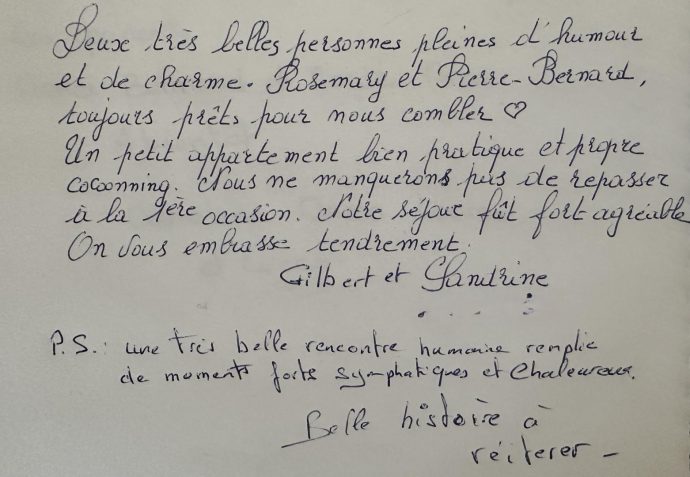 Deux très belles personnes pleines d'humour
et de charme. Rosemary et Pierre-Bernard,
toujours prêts pour nous combler ♡
Un petit appartement bien pratique et propre
cocoonning. Nous ne manquerons pas de repasser
à la 1ère occasion. Notre séjour fût fort agréable
On vous embrasse tendrement.
Gilbert et Sandrine
P.S.: une très belle rencontre humaine remplie
de moments forts symphatiques et chaleureux.
Belle histoire à
réiterer -